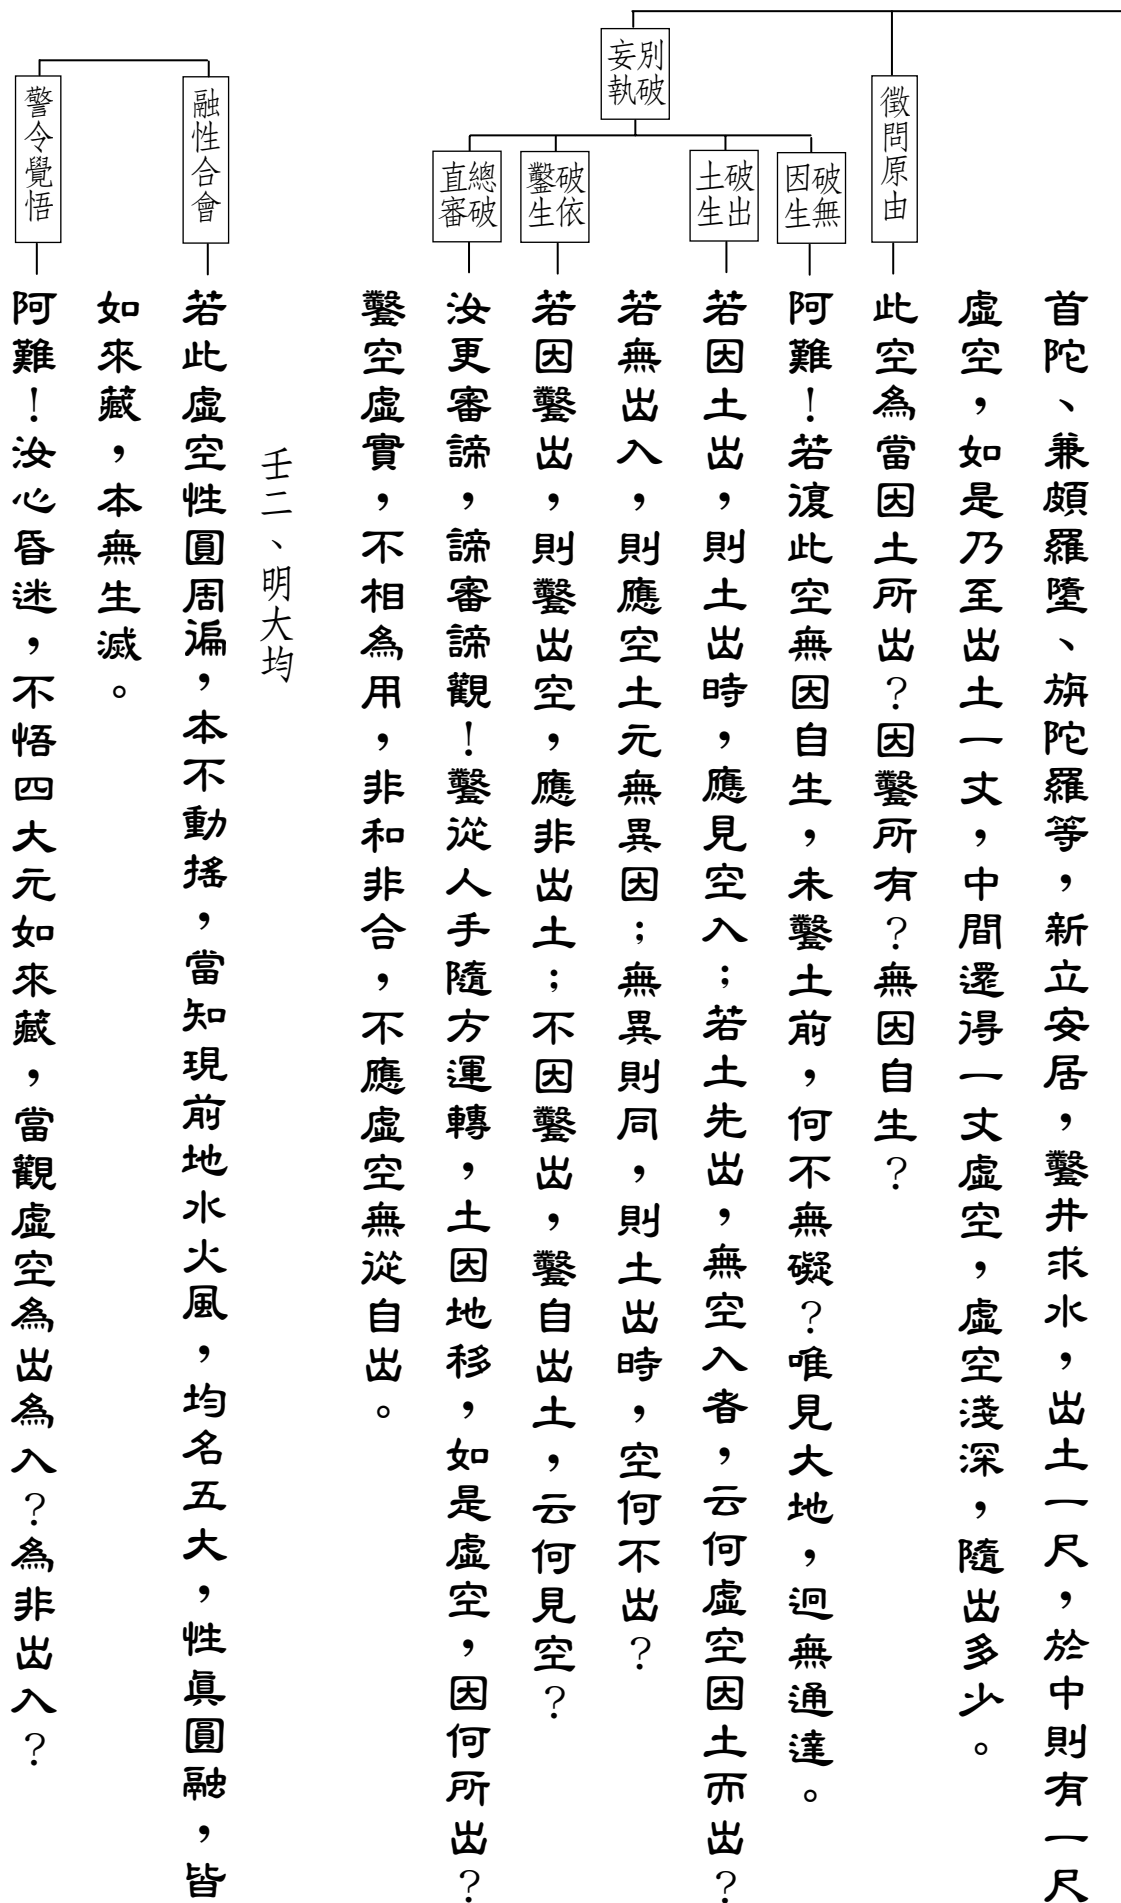 首陀、兼頗羅墮、旃陀羅等，新立安居，鑿井求水，出土一尺，於中則有一尺
虛空，如是乃至出土一丈，中間還得一丈虛空，虛空淺深，隨出多少。
徵問原由
此空為當因土所出？因鑿所有？無因自生？
別破妄執
破無因生
阿難！若復此空無因自生，未鑿土前，何不無礙？唯見大地，迥無通達。
破出土生
若因土出，則土出時，應見空入；若土先出，無空入者，云何虛空因土而出？
若無出入，則應空土元無異因；無異則同，則土出時，空何不出？
破依鑿生
若因鑿出，則鑿出空，應非出土；不因鑿出，鑿自出土，云何見空？
總破直審
汝更審諦，諦審諦觀！鑿從人手隨方運轉，土因地移，如是虛空，因何所出？
鑿空虛實，不相為用，非和非合，不應虛空無從自出。
壬二、明大均
融性合會
若此虛空性圓周遍，本不動搖，當知現前地水火風，均名五大，性真圓融，皆
如來藏，本無生滅。
警令覺悟
阿難！汝心昏迷，不悟四大元如來藏，當觀虛空為出為入？為非出入？